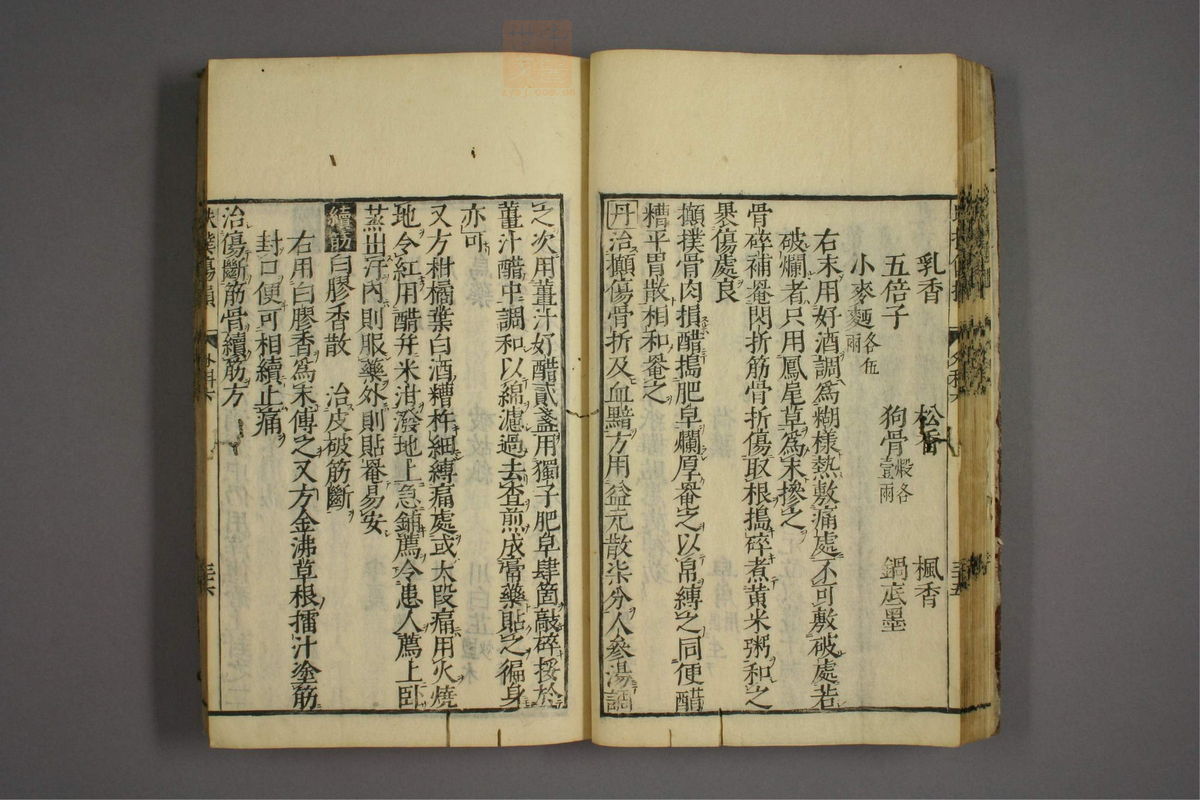 乳香 松香 楓香
五倍子 狗骨煅各壹兩 鍋底墨
小麥麵各伍兩
右末用好酒調爲糊樣熱敷痛處不可敷破處若
破爛者只用鳳尾草爲末摻之
骨碎補菴閃折筋骨折傷取根搗碎煮黃米粥和之
褁傷處良
攧撲骨肉損醋搗肥皁爛厚菴之以帛縛之同便醋
糟平胃散相和菴之
丹治攧傷骨折及血黯方用益元散柒分人參湯調
之次用薑汁好醋貳盞用獨子肥皁肆箇敲碎挼於
薑汁醋中調和以綿濾過去查煎成膏藥貼之徧身
亦可
又方柑橘葉白酒糟杵細縛痛處或大段痛用火燒
地令紅用醋幷米泔潑地上急鋪薦令患人薦上臥
蒸出汗內則服藥外則貼菴易安
續筋白膠香散 治皮破筋斷
右用白膠香爲末傅之又方金沸草根擂汁塗筋
封口便可相續止痛
治傷斷筋骨續筋方
外科六
三十六